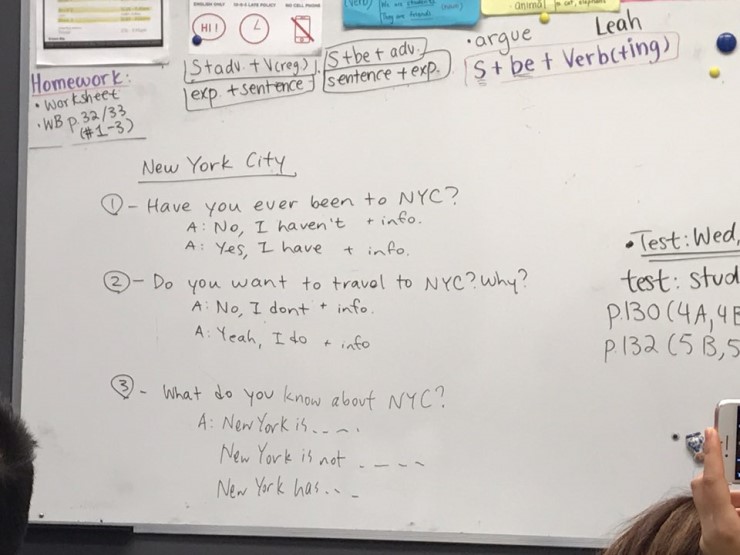 ENGLISH ONLY
LATE POLICY
NO CELL PHONE
HI!
(verb)
We are students
They are friends
(noun)
animal
Homework:
• Worksheet
• WB p.32/33
(#1-3)
S+adv. + V(reg)
exp. + sentence
S+be+adv.
sentence + exp.
• argue
Leah
S + be + Verb(ting)
New York City
① - Have you ever been to NYC?
A: No, I haven't + info.
A: Yes, I have + info.
② - Do you want to travel to NYC? Why?
A: No, I dont + info.
A: Yeah, I do + info
③ - What do you know about NYC?
A: New York is - - - .
New York is not - - - -
New York has . . _
• Test: Wed,
test: stud
p.130 (4A, 4B
p.132 (5B, 5